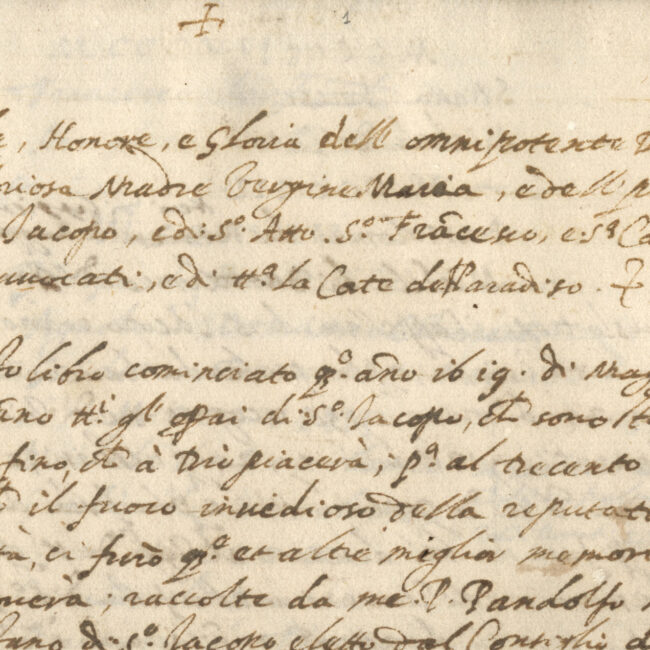 1
, Honore, e Gloria dell omnipotente D
riosa Madre Vergine Maria, e dell
Jacopo, e di S.o Atto. S.o Fra͂cesco, e S.a Ca
avvocati, e di tt.a la Corte del Paradiso.
libro cominciato q.o an͂o 1619. di Mag
an͂o tt.i gl' op̱ai di S.o Jacopo, che sono
fino, che à Dio piacerà; p.a al trecento
il fuoco invidioso della reputat
tà, ci furo͂ q.e et altre miglior memor
overà; raccolte da me. P. Pandolfo
di S.o Jacopo eletto dal Consiglio d